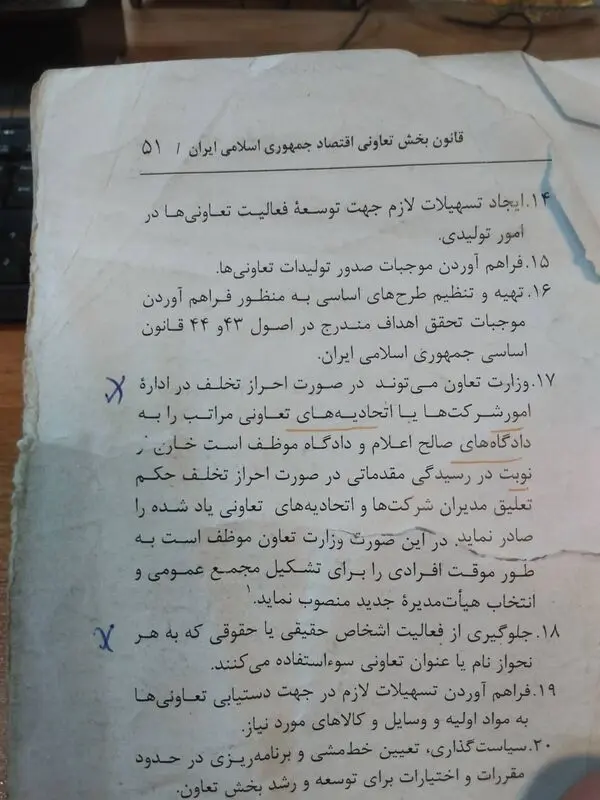 قانون بخش تعاونی اقتصاد جمهوری اسلامی ایران / ۵۱
۱۴. ایجاد تسهیلات لازم جهت توسعهٔ فعالیت تعاونی‌ها در
امور تولیدی.
۱۵. فراهم آوردن موجبات صدور تولیدات تعاونی‌ها.
۱۶. تهیه و تنظیم طرح‌های اساسی به منظور فراهم آوردن
موجبات تحقق اهداف مندرج در اصول ۴۳و ۴۴ قانون
اساسی جمهوری اسلامی ایران.
۱۷. وزارت تعاون می‌توند در صورت احراز تخلف در ادارهٔ
امورشرکت‌ها یا اتحادیه‌های تعاونی مراتب را به
دادگاه‌های صالح اعلام و دادگاه موظف است خارج از
نوبت در رسیدگی مقدماتی در صورت احراز تخلف حکم
تعلیق مدیران شرکت‌ها و اتحادیه‌های تعاونی یاد شده را
صادر نماید. در این صورت وزارت تعاون موظف است به
طور موقت افرادی را برای تشکیل مجمع عمومی و
انتخاب هیأت‌مدیرهٔ جدید منصوب نماید.۱
۱۸. جلوگیری از فعالیت اشخاص حقیقی یا حقوقی که به هر
نحواز نام یا عنوان تعاونی سوءاستفاده می‌کنند.
۱۹. فراهم آوردن تسهیلات لازم در جهت دستیابی تعاونی‌ها
به مواد اولیه و وسایل و کالاهای مورد نیاز.
۲۰. سیاست‌گذاری، تعیین خط‌مشی و برنامه‌ریزی در حدود
مقررات و اختیارات برای توسعه و رشد بخش تعاون.